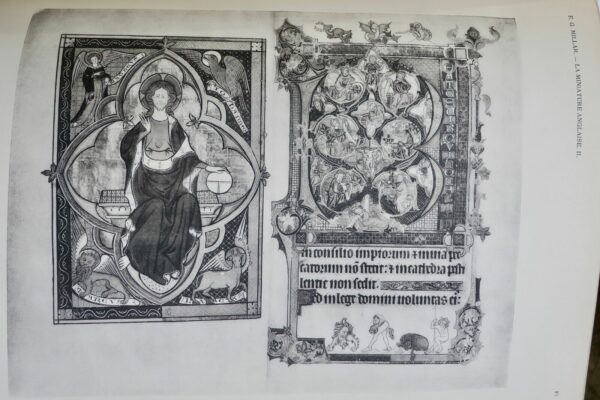 E.-G. MILLAR. — LA MINIATURE ANGLAISE, II.
in consilio impiorum ⁊ in uia pec
catorum nō stetit: ⁊ in cathedra pesti
lentie non sedit.
Sed in lege domini uoluntas ei:
MARCUS